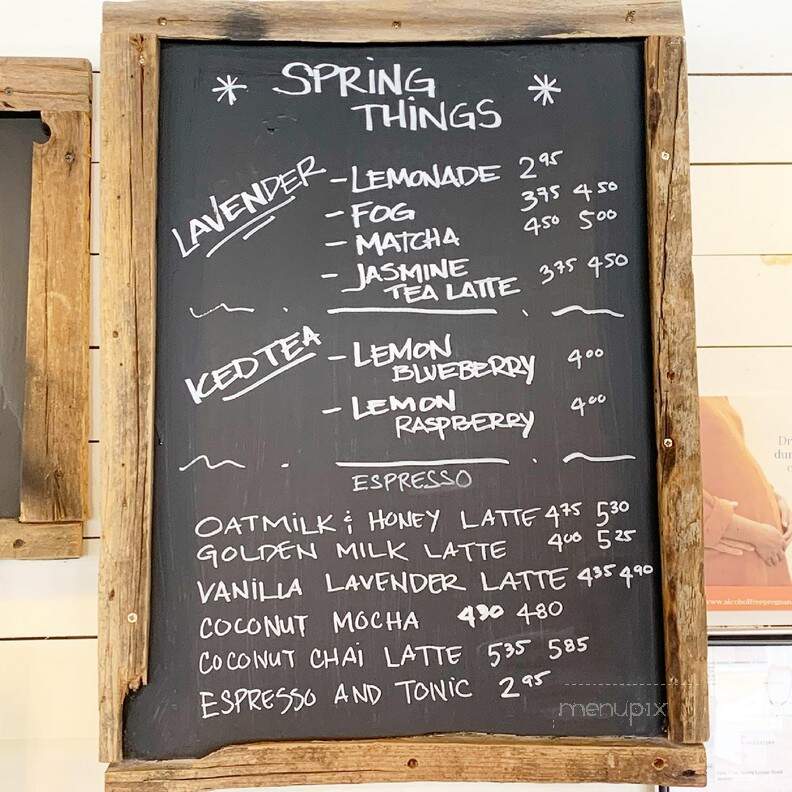 * SPRING *
THINGS
LAVENDER
- LEMONADE 2.95
- FOG 3.75 4.50
- MATCHA 4.50 5.00
- JASMINE
TEA LATTE 3.75 4.50
ICED TEA
- LEMON
BLUEBERRY 4.00
- LEMON
RASPBERRY 4.00
ESPRESSO
OATMILK & HONEY LATTE 4.75 5.30
GOLDEN MILK LATTE 4.00 5.25
VANILLA LAVENDER LATTE 4.35 4.90
COCONUT MOCHA 4.80
COCONUT CHAI LATTE 5.35 5.85
ESPRESSO AND TONIC 2.95
menupix